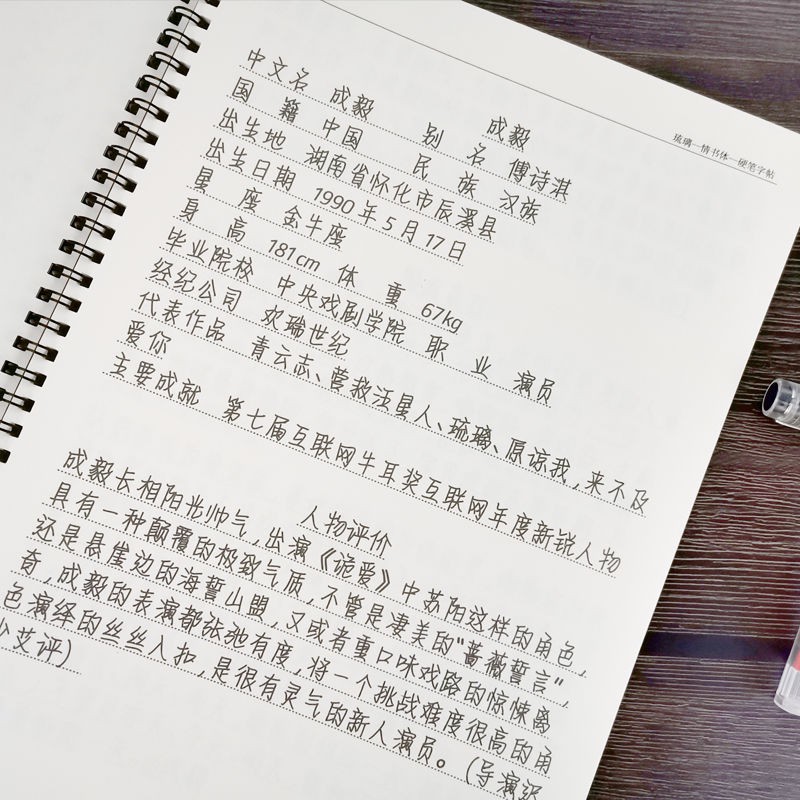 琉璃—情书体—硬笔字帖
成毅
中文名 成毅 别 名 傅诗淇
国 籍 中国 民 族 汉族
出生地 湖南省怀化市辰溪县
出生日期 1990年5月17日
星 座 金牛座
身 高 181cm 体 重 67kg
毕业院校 中央戏剧学院 职 业 演员
经纪公司 欢瑞世纪
代表作品 青云志、营救汪星人、琉璃、原谅我,来不及
爱你
主要成就 第七届互联网牛耳奖互联网年度新锐人物
人物评价
成毅长相阳光帅气,出演《诡爱》中苏阳这样的角色,
具有一种颠覆的极致气质,不管是凄美的“蔷薇誓言”,
还是悬崖边的海誓山盟,又或者重口味戏路的惊悚离
奇,成毅的表演都张弛有度,将一个挑战难度很高的角
色演绎的丝丝入扣,是很有灵气的新人演员。(导演梁
少艾评)